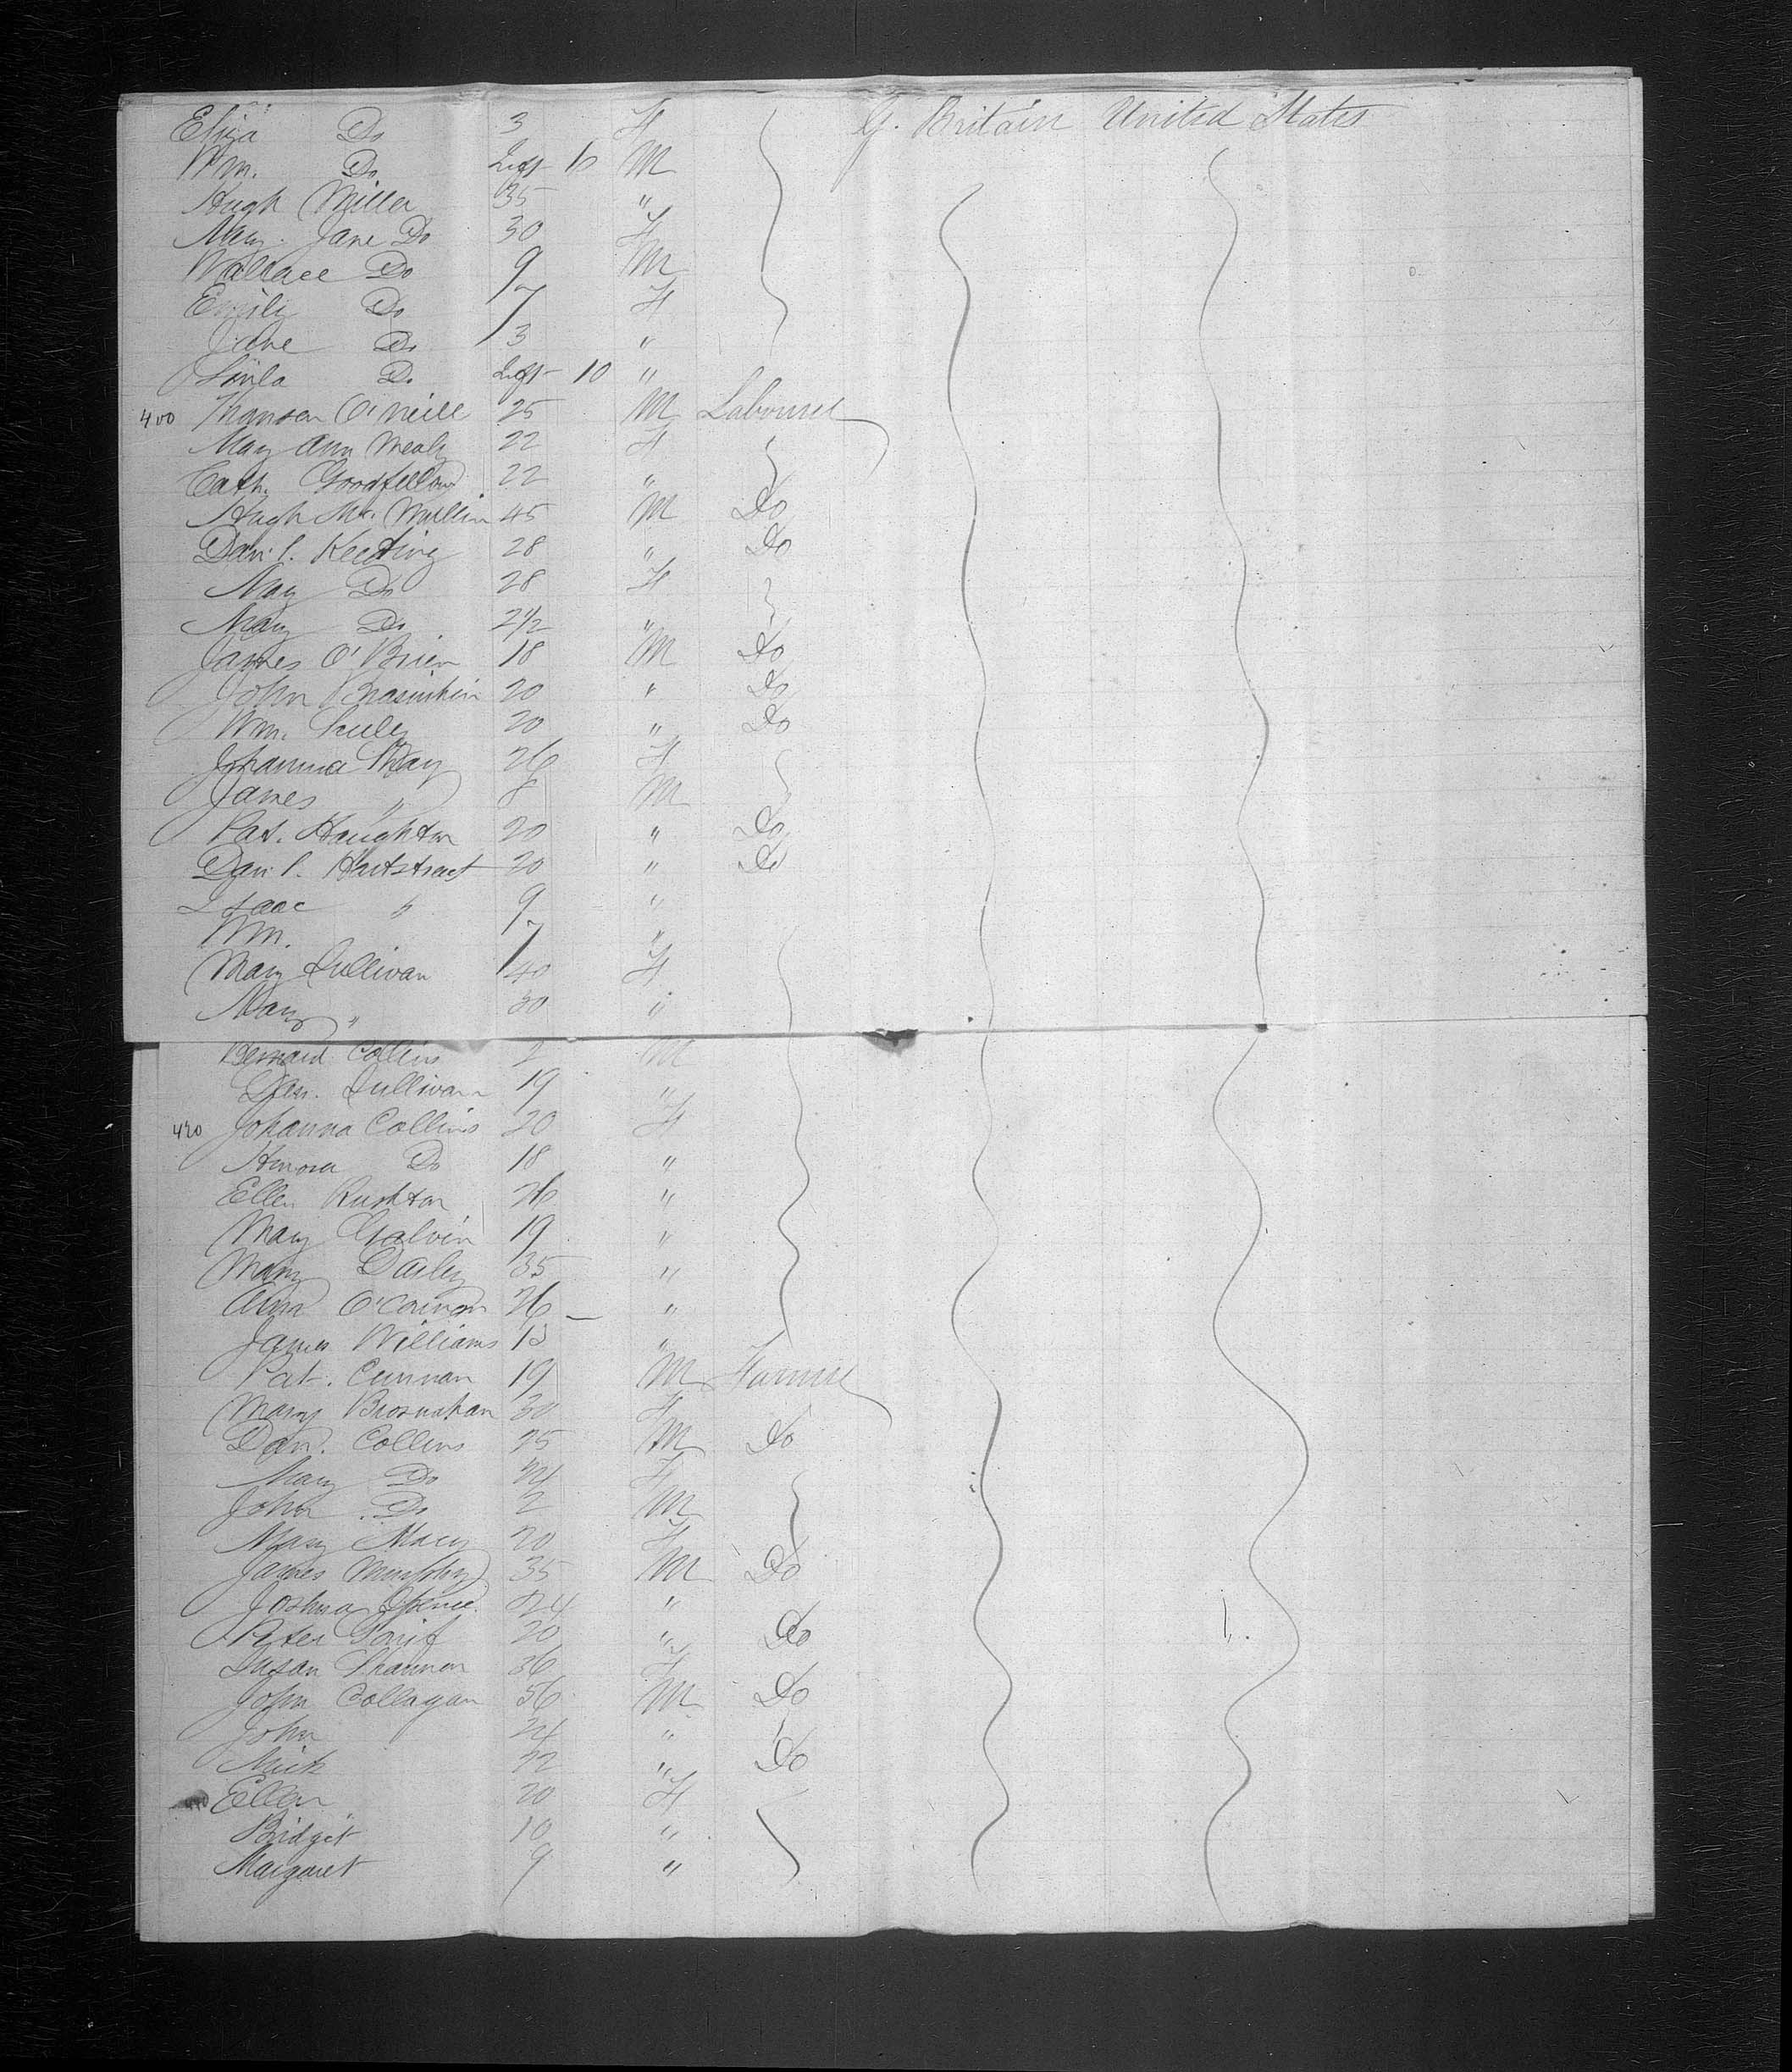 Eliza Do 3 F G. Britain United States
Wm. Do Inft 10 M
Hugh Miller 35 "
Mary Jane Do 30 F
Wallace Do 9 M
Emily Do 7 F
Jane Do 3 "
Do Inft 10 "
400 O'Neill 25 M Labourer
Mary Ann Mealy 22 F
Cath. Goodfellow 22 "
Hugh Mc. Mullin 45 M Do
Danl. Keeting 28 " Do
May Do 28 F
Mary Do 2 1/2 "
James O'Brien 18 M Do
John 20 " Do
Wm. 20 " Do
Johanna 26 F
James " 8 M
Pat. Haughton 20 " Do
Danl. 20 " Do
Isaac " 9 "
Wm. 7 "
Mary Sullivan 40 F
Mary " 30 "
Bernard Collins 2 M
Dan. Sullivan 19 "
420 Johanna Collins 20 F
Honora Do 18 "
Ellen Rushton 26 "
Mary Galvin 19 "
Mary Dailey 35 "
Ann O'Connor 26 "
James Williams "
Pat. Curnan 19 M Farmer
Mary Brosnahan 30 F
Dan. Collins 25 M Do
Mary Do 24 F
John Do 2 M
Mary Macy 20 F
James Murphy 35 M Do
Joshua Spence 24 "
Peter 20 " Do
Susan Shannon 36 F
John Collagan 56 M Do
John 24 "
Mick 22 " Do
440 Ellen 20 F
Bridget 10 "
Margaret 9 "